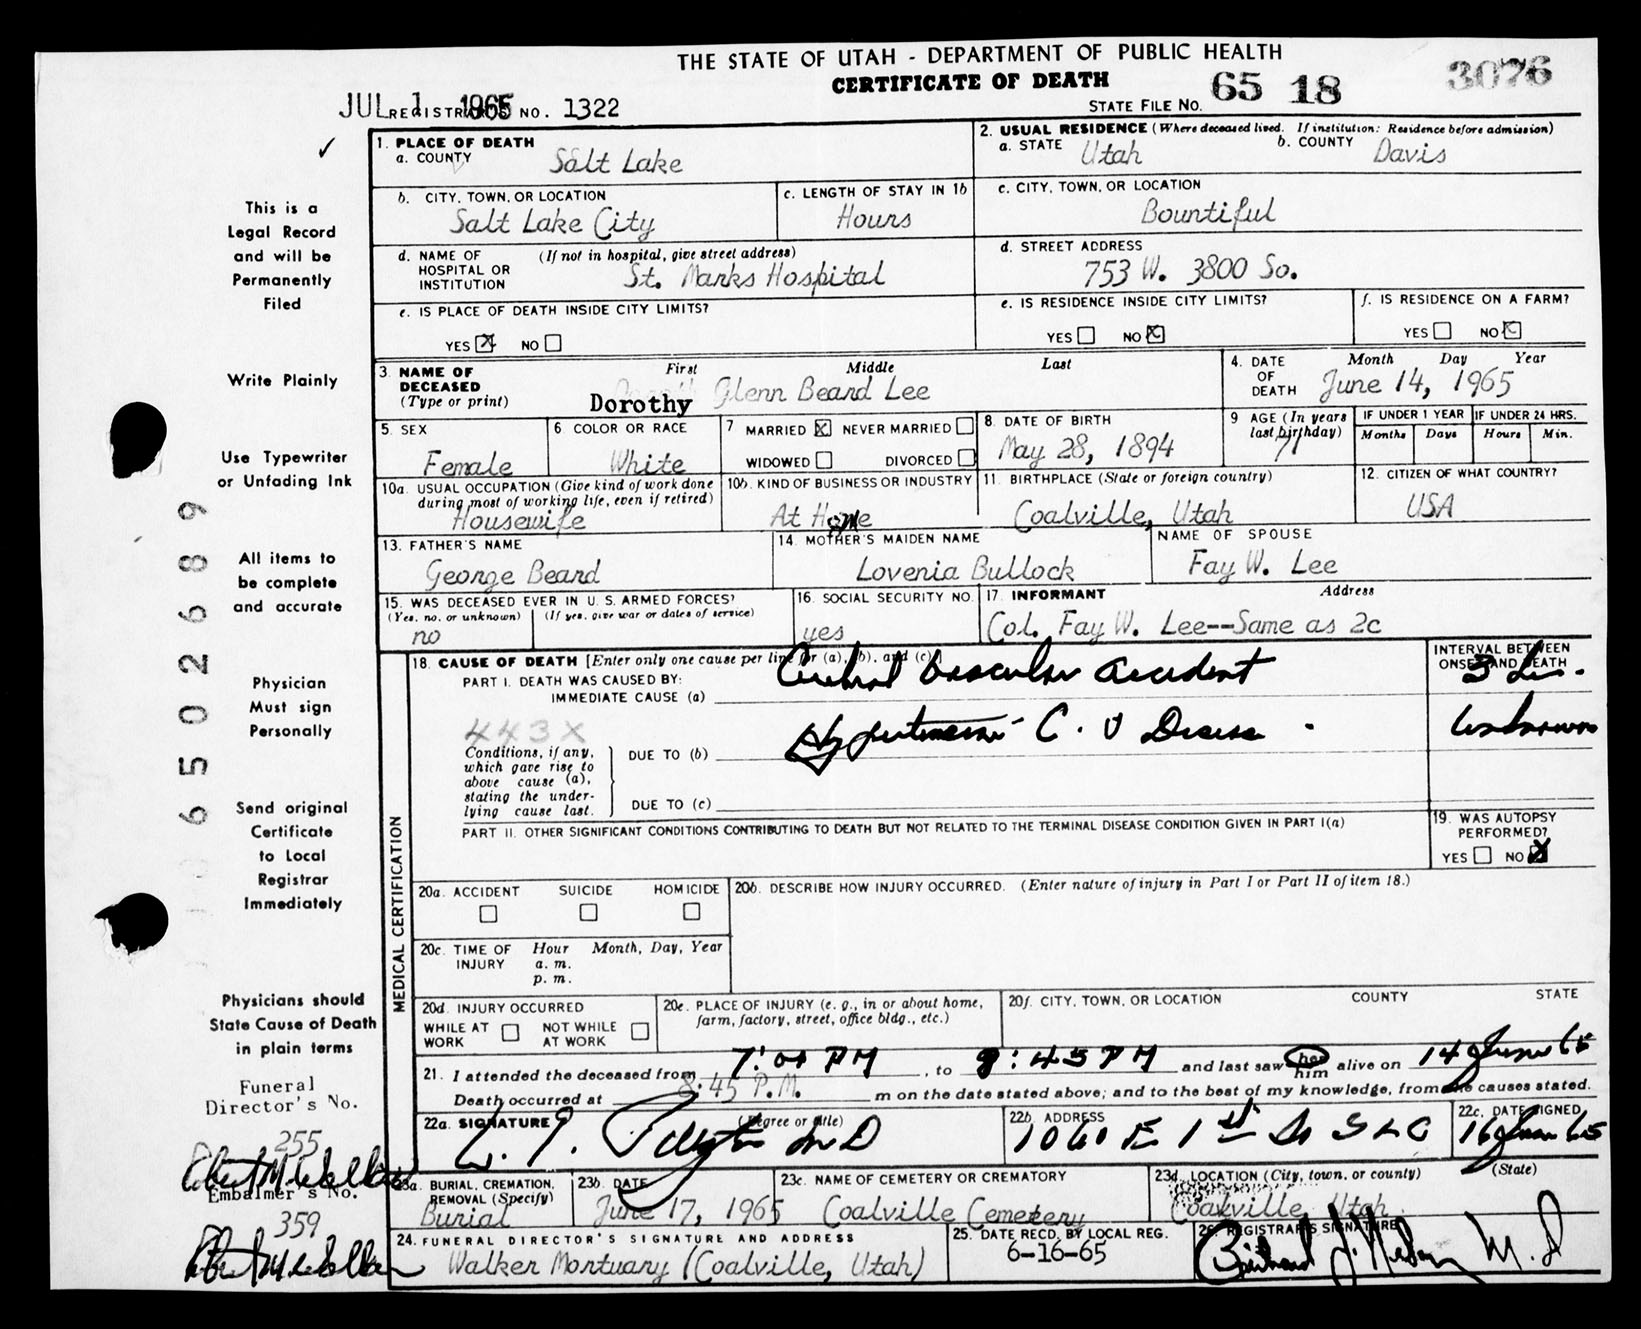 THE STATE OF UTAH - DEPARTMENT OF PUBLIC HEALTH
CERTIFICATE OF DEATH
3076
JUL 1 1965 REGISTRAR'S NO. 1322
STATE FILE NO. 65 18
This is a
Legal Record
and will be
Permanently
Filed
Write Plainly
Use Typewriter
or Unfading Ink
All items to
be complete
and accurate
Physician
Must sign
Personally
Send original
Certificate
to Local
Registrar
Immediately
Physicians should
State Cause of Death
in plain terms
Funeral
Director's No.
255
Embalmer's No.
359
650268 9
1. PLACE OF DEATH
a. COUNTY Salt Lake
2. USUAL RESIDENCE (Where deceased lived. If institution: Residence before admission)
a. STATE Utah b. COUNTY Davis
b. CITY, TOWN, OR LOCATION Salt Lake City
c. LENGTH OF STAY IN 1b Hours
c. CITY, TOWN, OR LOCATION Bountiful
d. NAME OF HOSPITAL OR INSTITUTION (If not in hospital, give street address) St. Marks Hospital
d. STREET ADDRESS 753 W. 3800 So.
e. IS PLACE OF DEATH INSIDE CITY LIMITS?
YES X NO
e. IS RESIDENCE INSIDE CITY LIMITS?
YES NO X
f. IS RESIDENCE ON A FARM?
YES NO X
3. NAME OF DECEASED (Type or print) First Middle Last
Dorothy Glenn Beard Lee
4. DATE OF DEATH Month Day Year
June 14, 1965
5. SEX Female
6. COLOR OR RACE White
7 MARRIED X NEVER MARRIED
WIDOWED DIVORCED
8. DATE OF BIRTH May 28, 1894
9 AGE (In years last birthday) 71
IF UNDER 1 YEAR Months Days
IF UNDER 24 HRS. Hours Min.
10a. USUAL OCCUPATION (Give kind of work done during most of working life, even if retired) Housewife
10b. KIND OF BUSINESS OR INDUSTRY At Home
11. BIRTHPLACE (State or foreign country) Coalville, Utah
12. CITIZEN OF WHAT COUNTRY? USA
13. FATHER'S NAME George Beard
14. MOTHER'S MAIDEN NAME Lovenia Bullock
NAME OF SPOUSE Fay W. Lee
15. WAS DECEASED EVER IN U. S. ARMED FORCES?
(Yes, no, or unknown) (If yes, give war or dates of service)
no
16. SOCIAL SECURITY NO. yes
17. INFORMANT Address
Col. Fay W. Lee--Same as 2c
MEDICAL CERTIFICATION
18. CAUSE OF DEATH [Enter only one cause per line for (a), (b), and (c)]
PART I. DEATH WAS CAUSED BY:
IMMEDIATE CAUSE (a) Cerebral Vascular accident
INTERVAL BETWEEN ONSET AND DEATH
443X
Conditions, if any, which gave rise to above cause (a), stating the underlying cause last.
DUE TO (b) Hypertensive C. V Disease Unknown
DUE TO (c)
PART II. OTHER SIGNIFICANT CONDITIONS CONTRIBUTING TO DEATH BUT NOT RELATED TO THE TERMINAL DISEASE CONDITION GIVEN IN PART I(a)
19. WAS AUTOPSY PERFORMED?
YES NO X
20a. ACCIDENT SUICIDE HOMICIDE
20b. DESCRIBE HOW INJURY OCCURRED. (Enter nature of injury in Part I or Part II of item 18.)
20c. TIME OF INJURY Hour Month, Day, Year
a. m.
p. m.
20d. INJURY OCCURRED
WHILE AT WORK NOT WHILE AT WORK
20e. PLACE OF INJURY (e. g., in or about home, farm, factory, street, office bldg., etc.)
20f. CITY, TOWN, OR LOCATION COUNTY STATE
21. I attended the deceased from 7:00 PM, to 8:45 PM and last saw her him alive on 14 June 65
Death occurred at 8:45 P.M. m on the date stated above; and to the best of my knowledge, from the causes stated.
22a. SIGNATURE (Degree or title) MD
22b. ADDRESS 1060 E 1st So SLC
22c. DATE SIGNED 16 June 65
23a. BURIAL, CREMATION, REMOVAL (Specify) Burial
23b. DATE June 17, 1965
23c. NAME OF CEMETERY OR CREMATORY Coalville Cemetery
23d. LOCATION (City, town, or county) (State) Coalville, Utah
24. FUNERAL DIRECTOR'S SIGNATURE AND ADDRESS
Walker Mortuary (Coalville, Utah)
25. DATE RECD. BY LOCAL REG. 6-16-65
26. REGISTRAR'S SIGNATURE
M.D